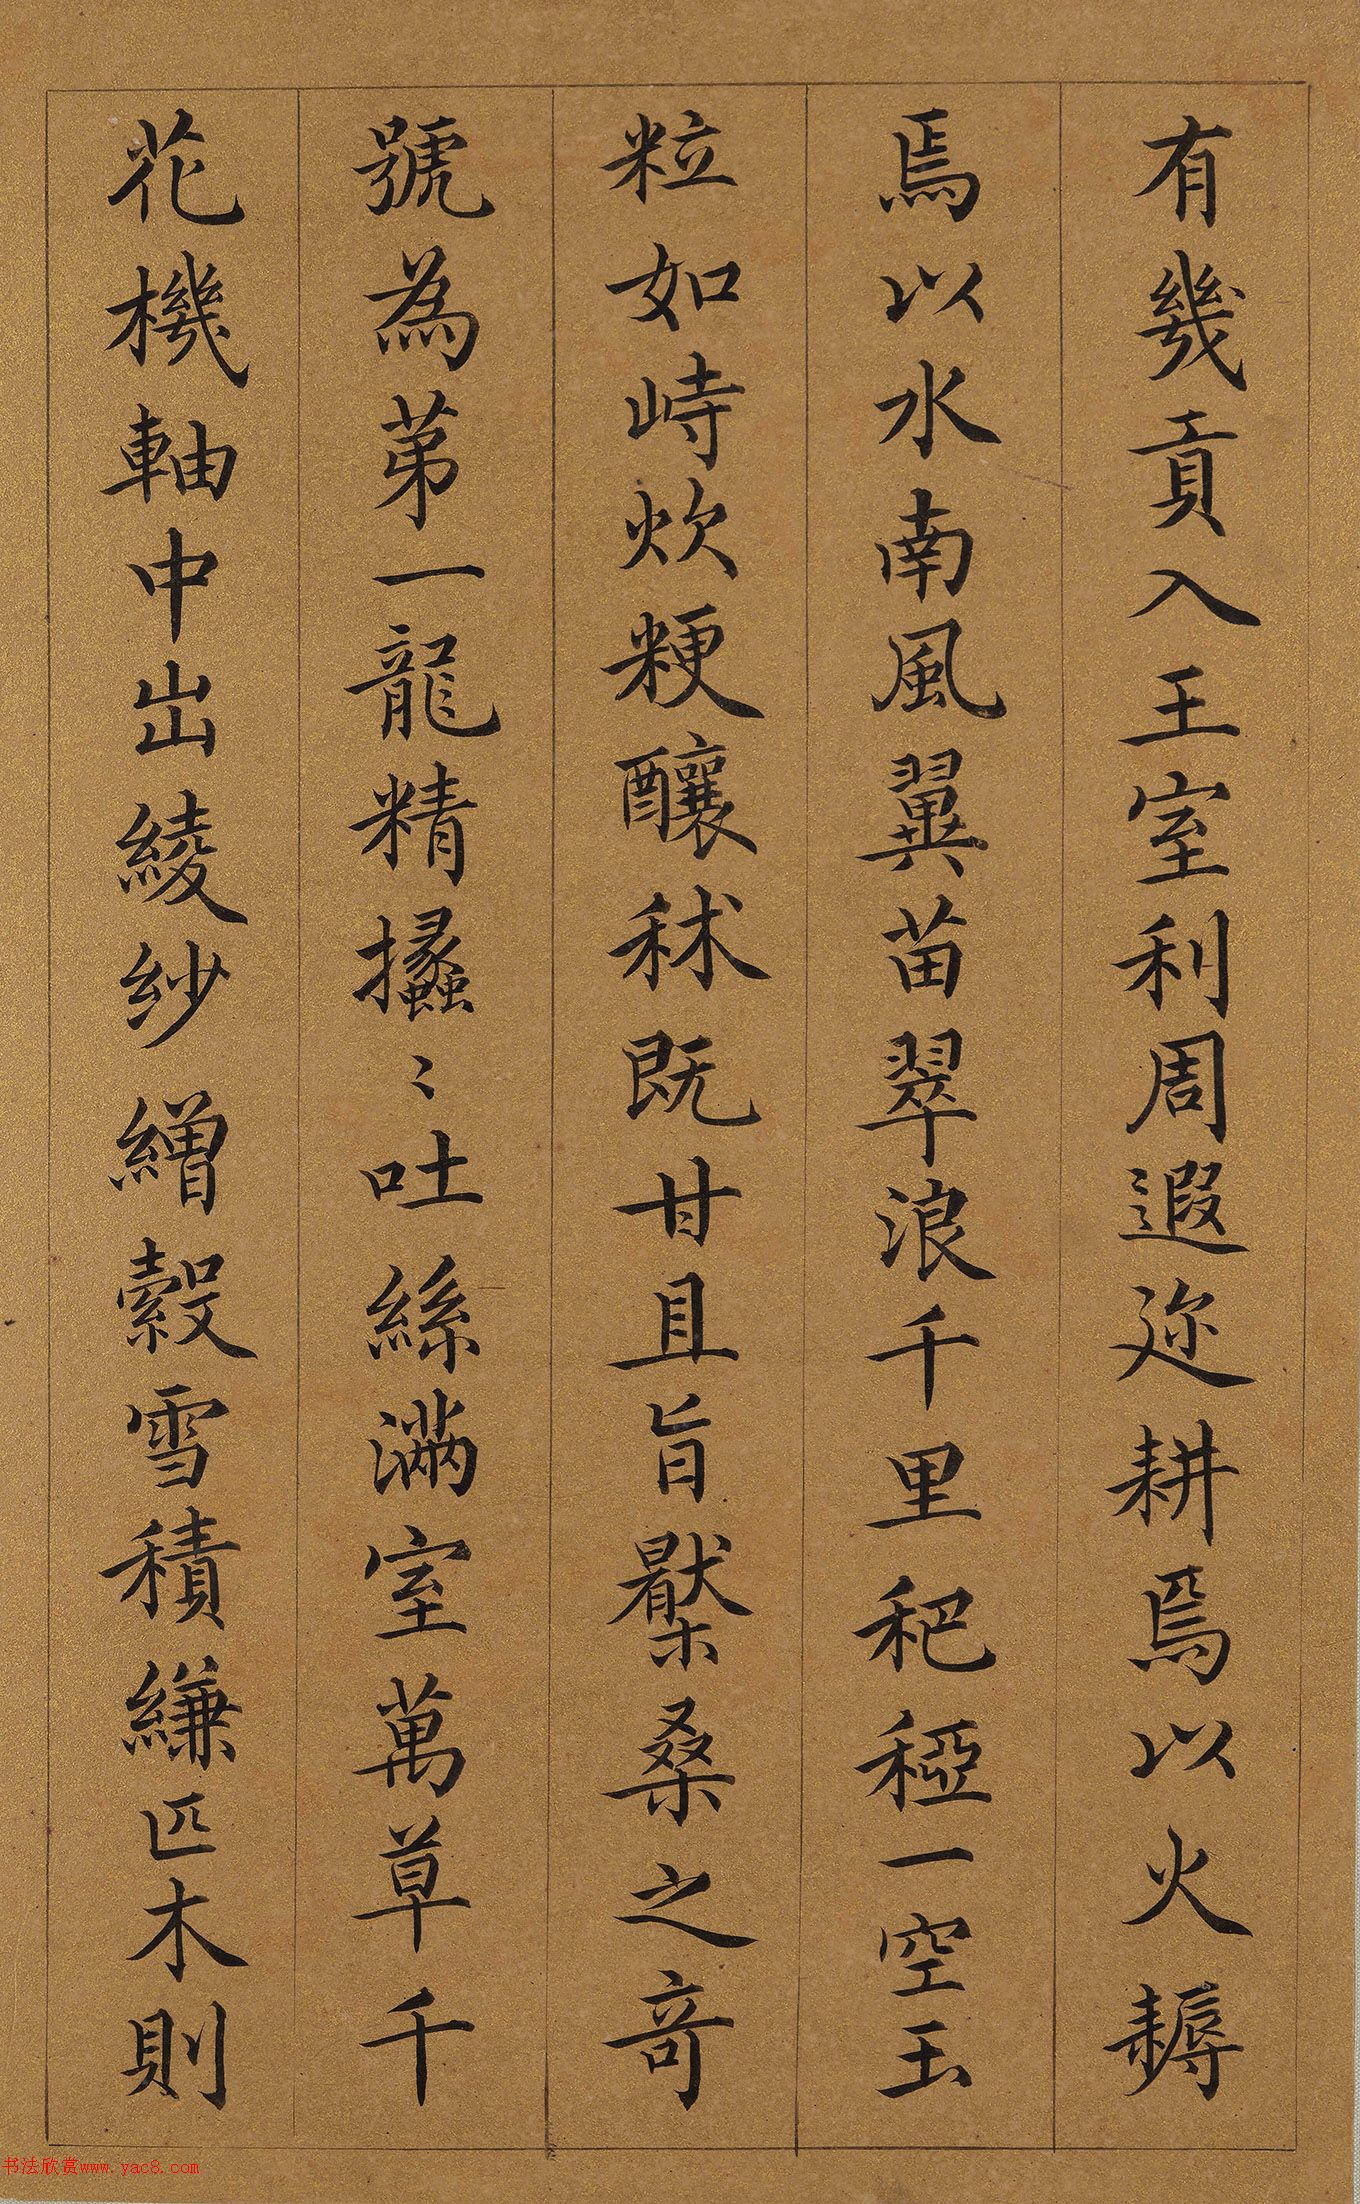 有幾貢入王室利周遐迩耕焉以火耨
焉以水南風翼苗翠浪千里䄫稏一空玉
粒如峙炊粳釀秫既甘且旨檿桑之奇
號為苐一龍精攭〻吐絲滿室萬草千
花機軸中出綾紗繒縠雪積縑匹木則
书法欣赏www.yac8.com